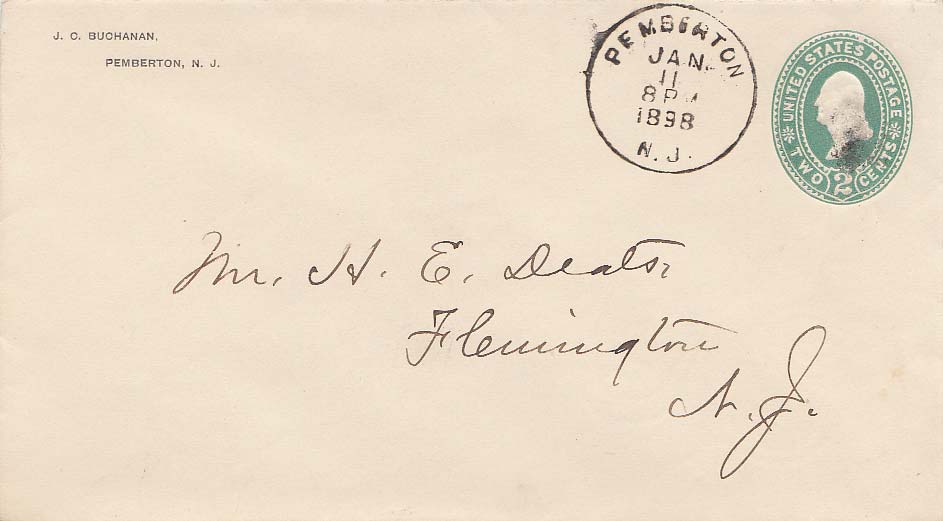 J. C. BUCHANAN,
PEMBERTON, N. J.
PEMBERTON
JAN.
11
8 PM
1898
N. J.
UNITED STATES POSTAGE
TWO 2 CENTS
Mr. H. E. Deats,
Flemington
N. J.